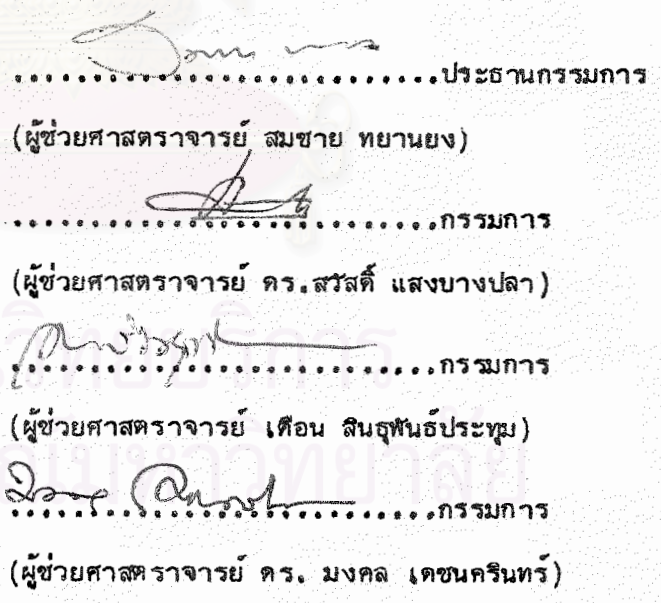 ..............................ประธานกรรมการ
(ผู้ช่วยศาสตราจารย์ สมชาย ทยานยง)
..............................กรรมการ
(ผู้ช่วยศาสตราจารย์ ดร.สวัสดิ์ แสงบางปลา)
..............................กรรมการ
(ผู้ช่วยศาสตราจารย์ เตือน สินธุพันธ์ประทุม)
..............................กรรมการ
(ผู้ช่วยศาสตราจารย์ ดร. มงคล เดชนครินทร์)